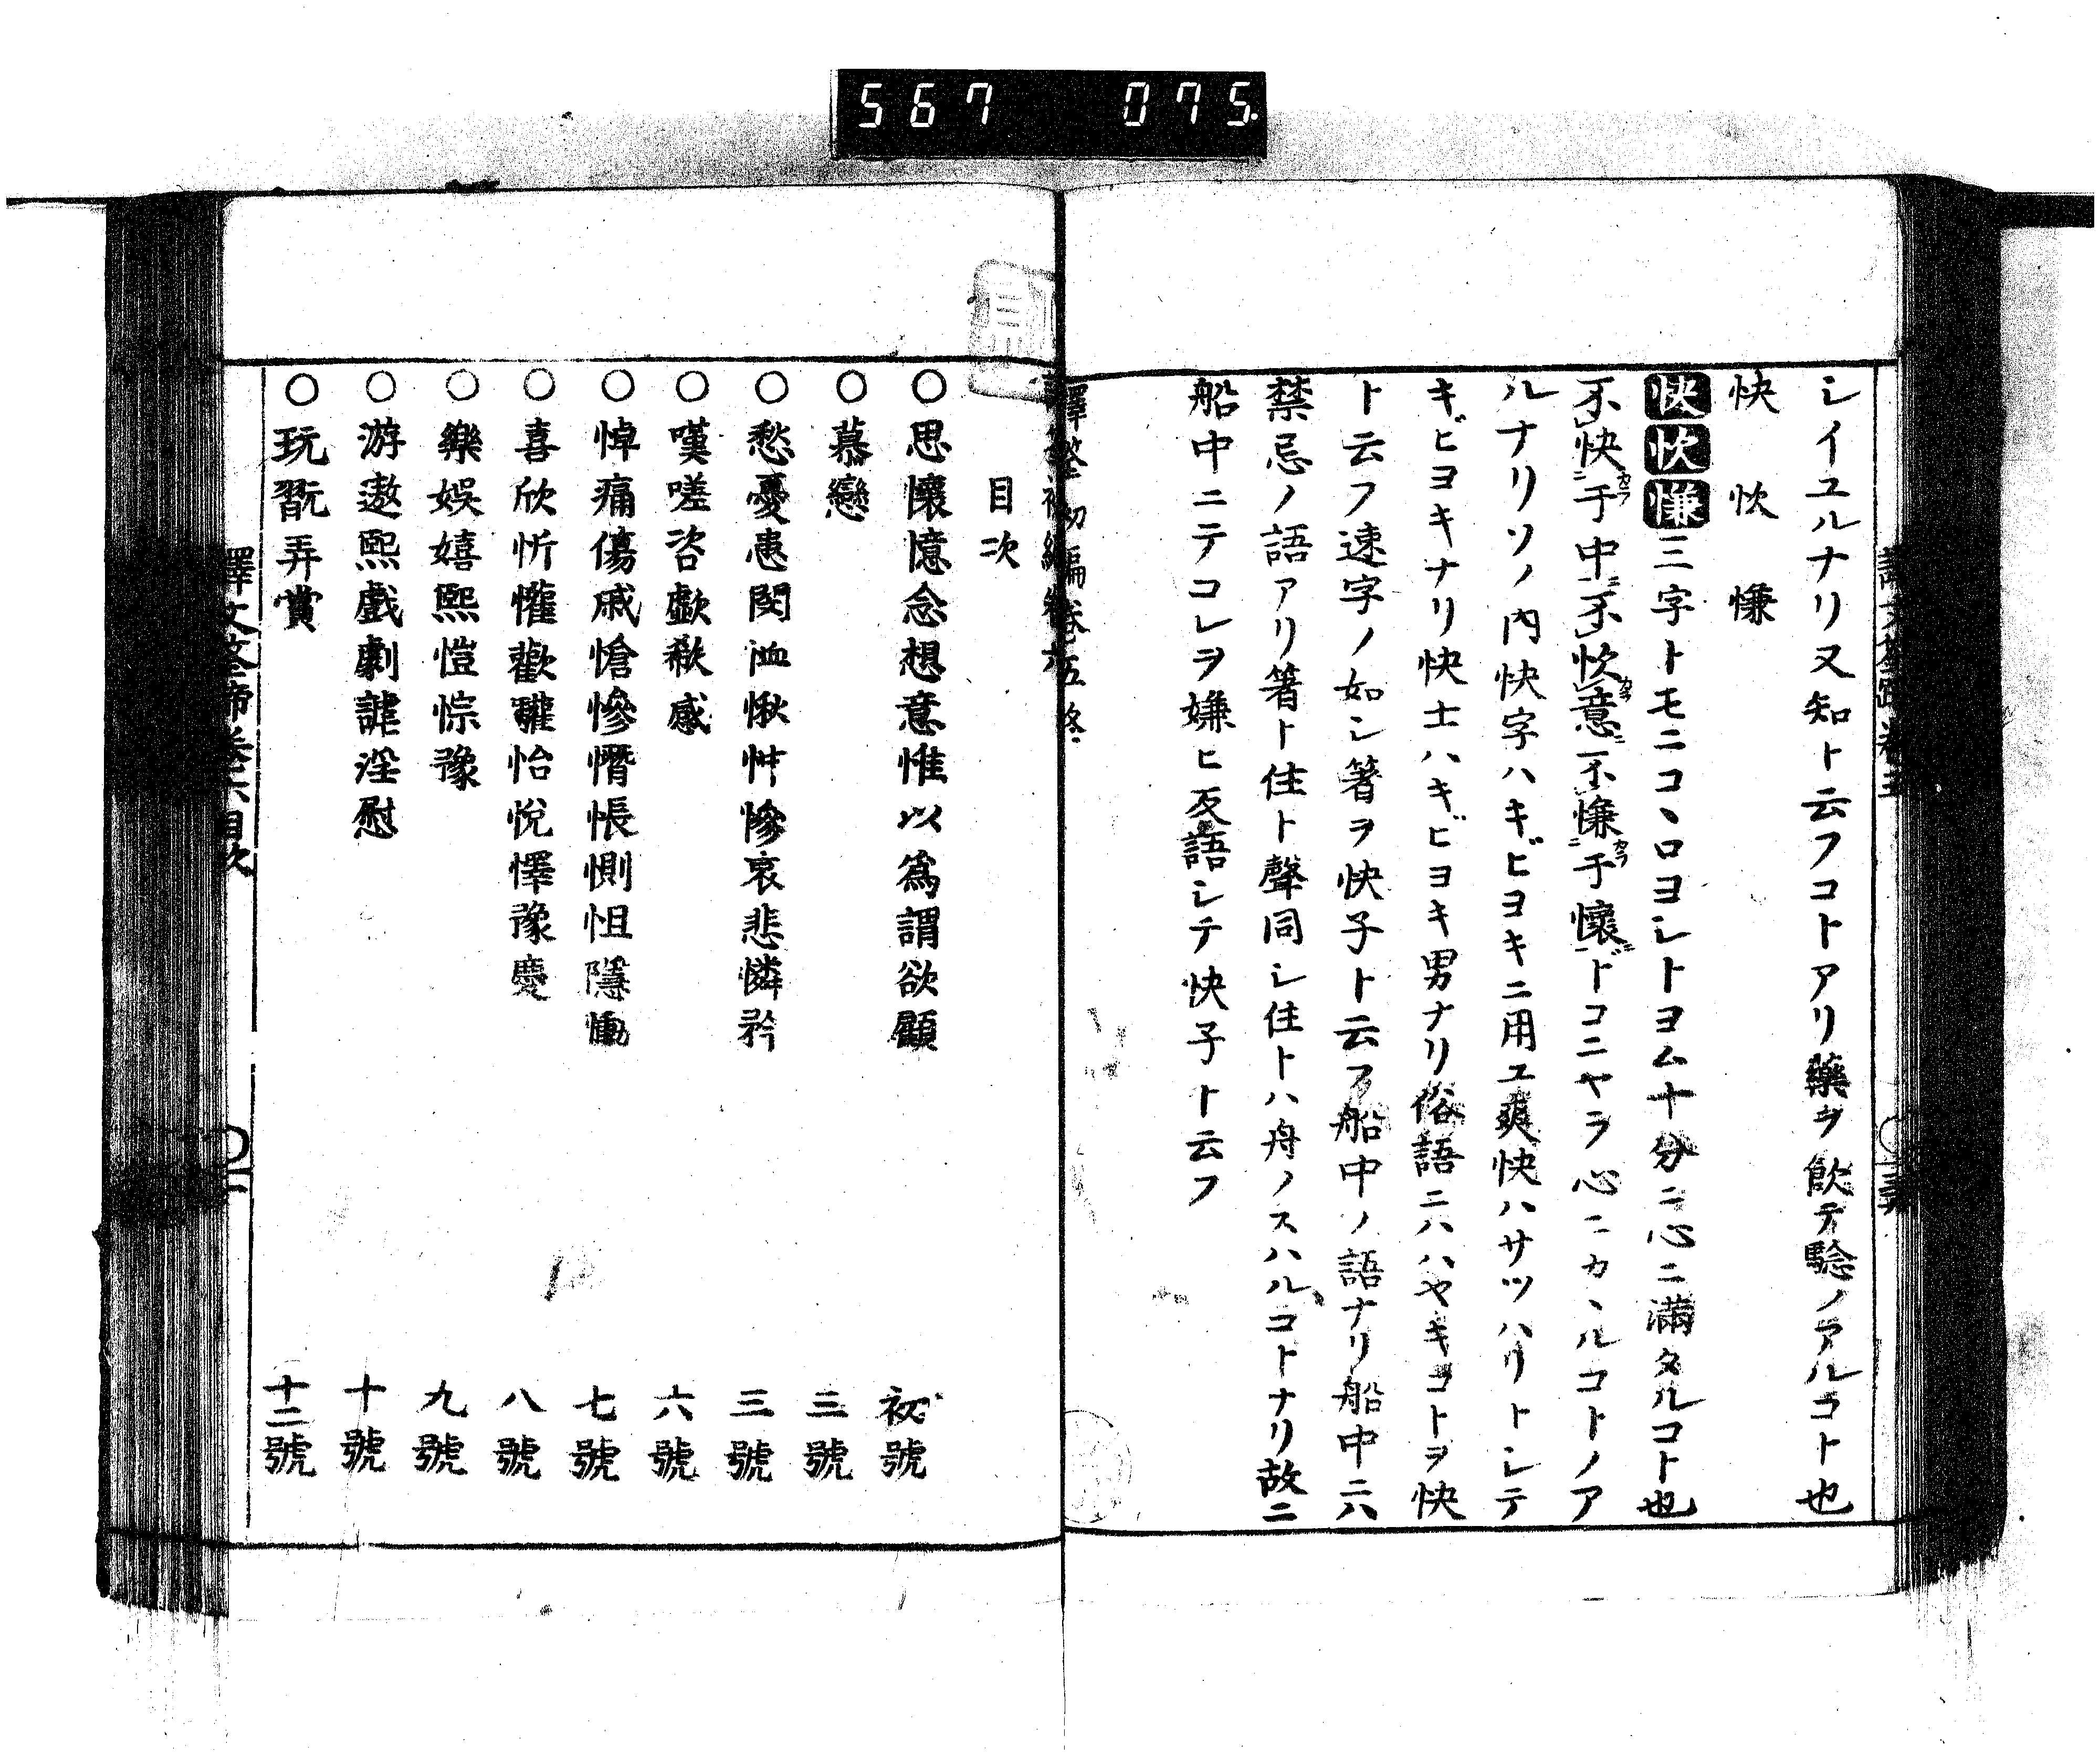 567 075.
シイユルナリ又知ト云フコトアリ藥ヲ飲テ驗ノアルコト也
快 忺 慊
快忺慊三字トモニコヽロヨシトヨム十分ニ心ニ滿タルコト也
不快于中不忺意不慊于懷ドコニヤラ心ニカヽルコトノア
ルナリソノ内快字ハキビヨキニ用ユ爽快ハサツハリトシテ
キビヨキナリ快士ハキビヨキ男ナリ俗語ニハハヤキコトヲ快
ト云フ速字ノ如シ箸ヲ快子ト云フ船中ノ語ナリ船中ニハ
禁忌ノ語アリ箸ト住ト聲同シ住トハ舟ノスハルコトナリ故ニ
船中ニテコレヲ嫌ヒ反語シテ快子ト云フ
目次
○思懷憶念想意惟以爲謂欲顧 初號
○慕戀 三號
○愁憂患閔恤愀忡慘哀悲憐矜 三號
○嘆嗟咨歔欷感 六號
○悼痛傷戚愴慘憯悵惻怛隱慟 七號
○喜欣忻懽歡驩怡悅懌豫慶 八號
○樂娛嬉熙愷悰豫 九號
○游遨熙戲劇謔淫慰 十號
○玩翫弄賞 十二號
譯文筌蹄卷六目次